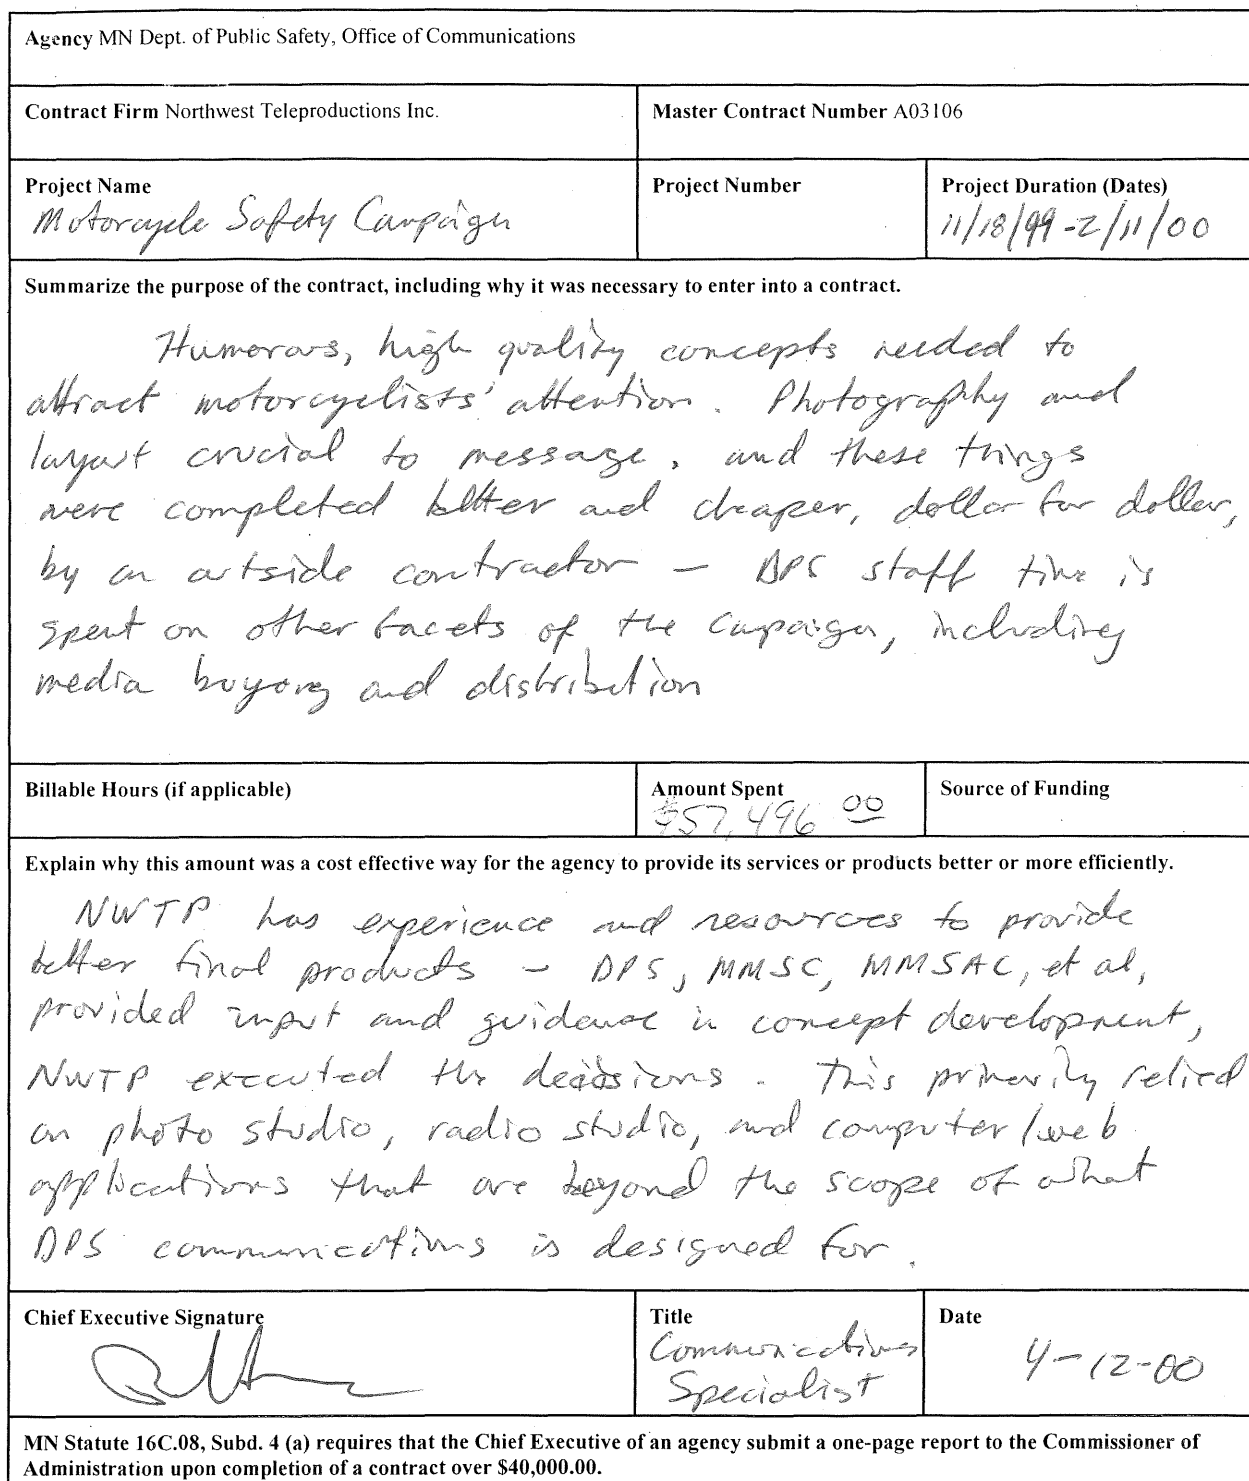 Agency MN Dept. of Public Safety, Office of Communications
Contract Firm Northwest Teleproductions Inc.
Master Contract Number A03106
Project Name
Motorcycle Safety Campaign
Project Number
Project Duration (Dates)
11/18/99-2/11/00
Summarize the purpose of the contract, including why it was necessary to enter into a contract.
Humorous, high quality concepts needed to
attract motorcyclists' attention. Photography and
layout crucial to message, and these things
were completed better and cheaper, dollar for dollar,
by an outside contractor — DPS staff time is
spent on other facets of the campaign, including
media buying and distribution
Billable Hours (if applicable)
Amount Spent
$57,496 00
Source of Funding
Explain why this amount was a cost effective way for the agency to provide its services or products better or more efficiently.
NWTP has experience and resources to provide
better final products - DPS, MMSC, MMSAC, et al,
provided input and guidance in concept development,
NWTP executed the decisions. This primarily relied
on photo studio, radio studio, and computer/web
applications that are beyond the scope of what
DPS communications is designed for.
Chief Executive Signature
Title
Communications
Specialist
Date
4-12-00
MN Statute 16C.08, Subd. 4 (a) requires that the Chief Executive of an agency submit a one-page report to the Commissioner of
Administration upon completion of a contract over $40,000.00.